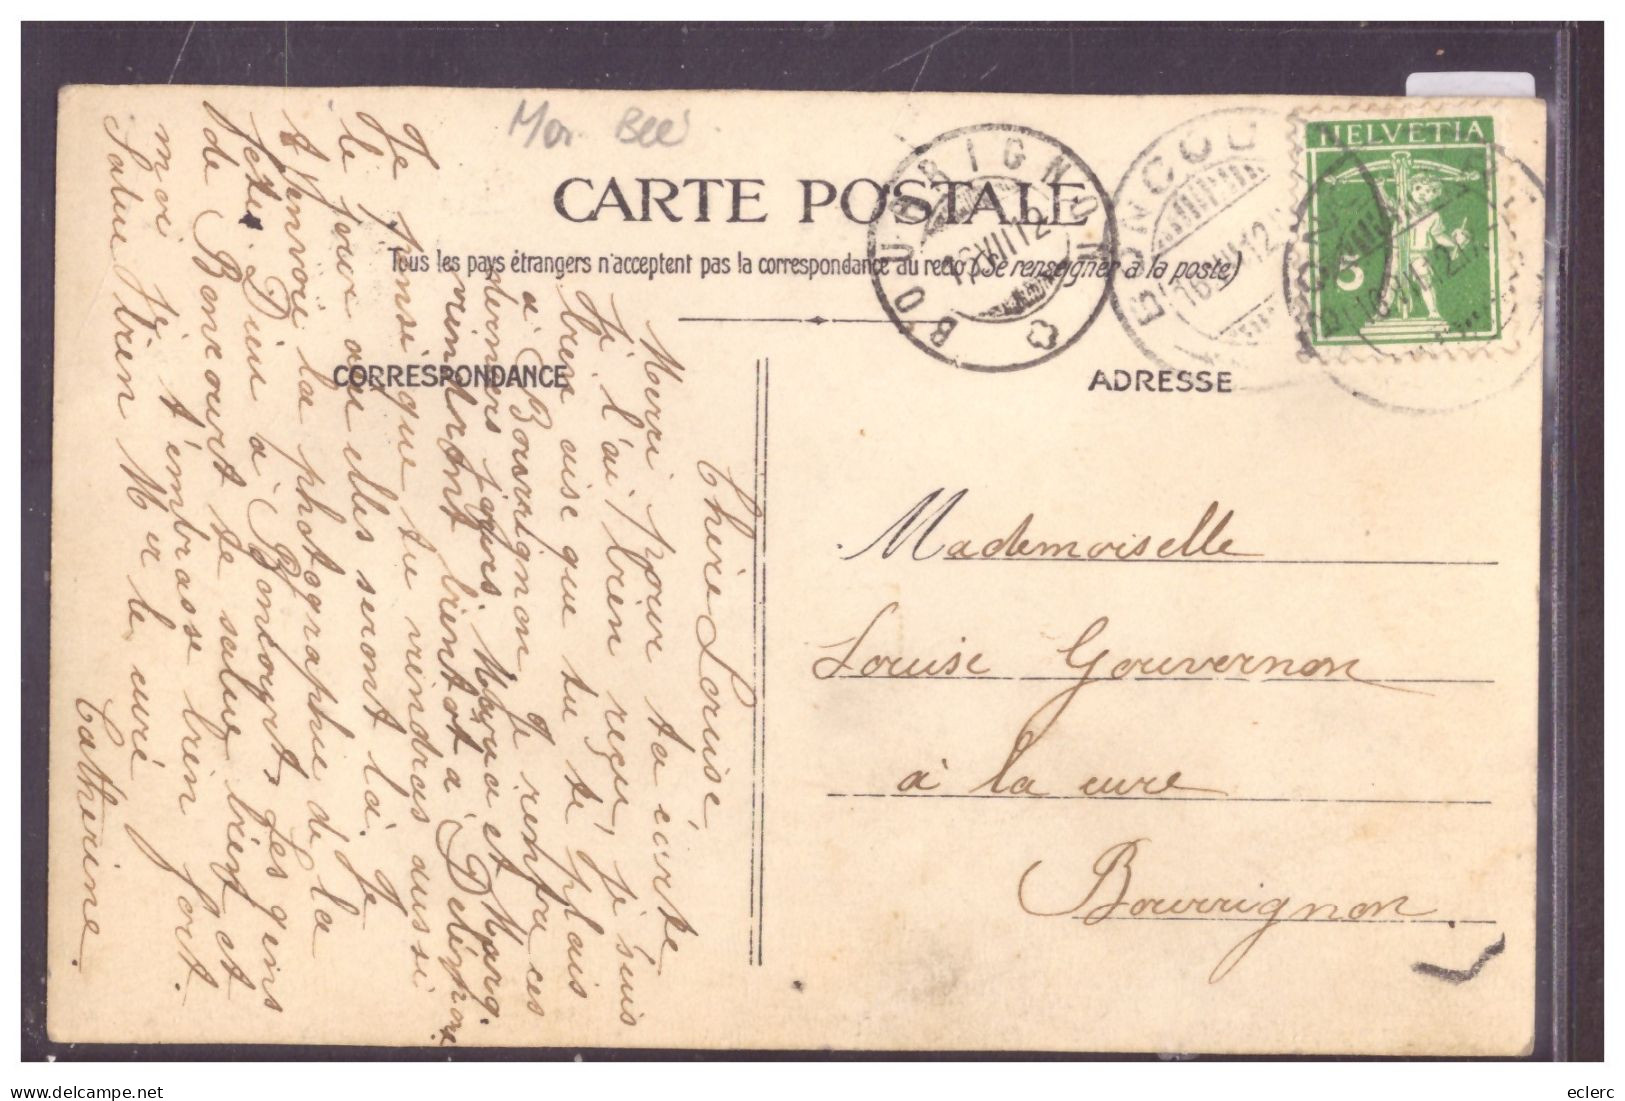 Mon Bee
CARTE POSTALE
Tous les pays étrangers n'acceptent pas la correspondance au recto (Se renseigner à la poste)
CORRESPONDANCE
ADRESSE
HELVETIA
5
BOURRIGNON
16.VII.12
BONCOU
16.VII.12
Chère Louise
Merci pour ta carte
je l'ai bien reçu, je suis
bien aise que tu te plais
à Bourrignon Je
derniers jours. et Marg.
viendront bientot à Delémont
Je pense que tu viendras aussi
le jour ou elles seront là. Je
t'envoie la photographie de la
fête Dieu à Boncourt, Les gens
de Boncourt te salue bien et
moi je t'embrasse bien fort.
Salue bien Mr le curé
Catherine.
Mademoiselle
Louise Gouvernon
à la cure
Bourrignon.
eclerc